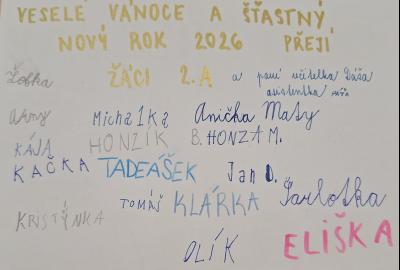 VESELÉ VÁNOCE A ŠŤASTNÝ
NOVÝ ROK 2026 PŘEJÍ
ŽÁCI 2.A a paní učitelka Dáša
asistentka
Michalka Anička Maty
KÁJA HONZÍK B. HONZA M.
KAČKA TADEÁŠEK Jan D.
TOMÁŠ KLÁRKA Šarlotka
KRISTÝNKA
OLÍK ELIŠKA